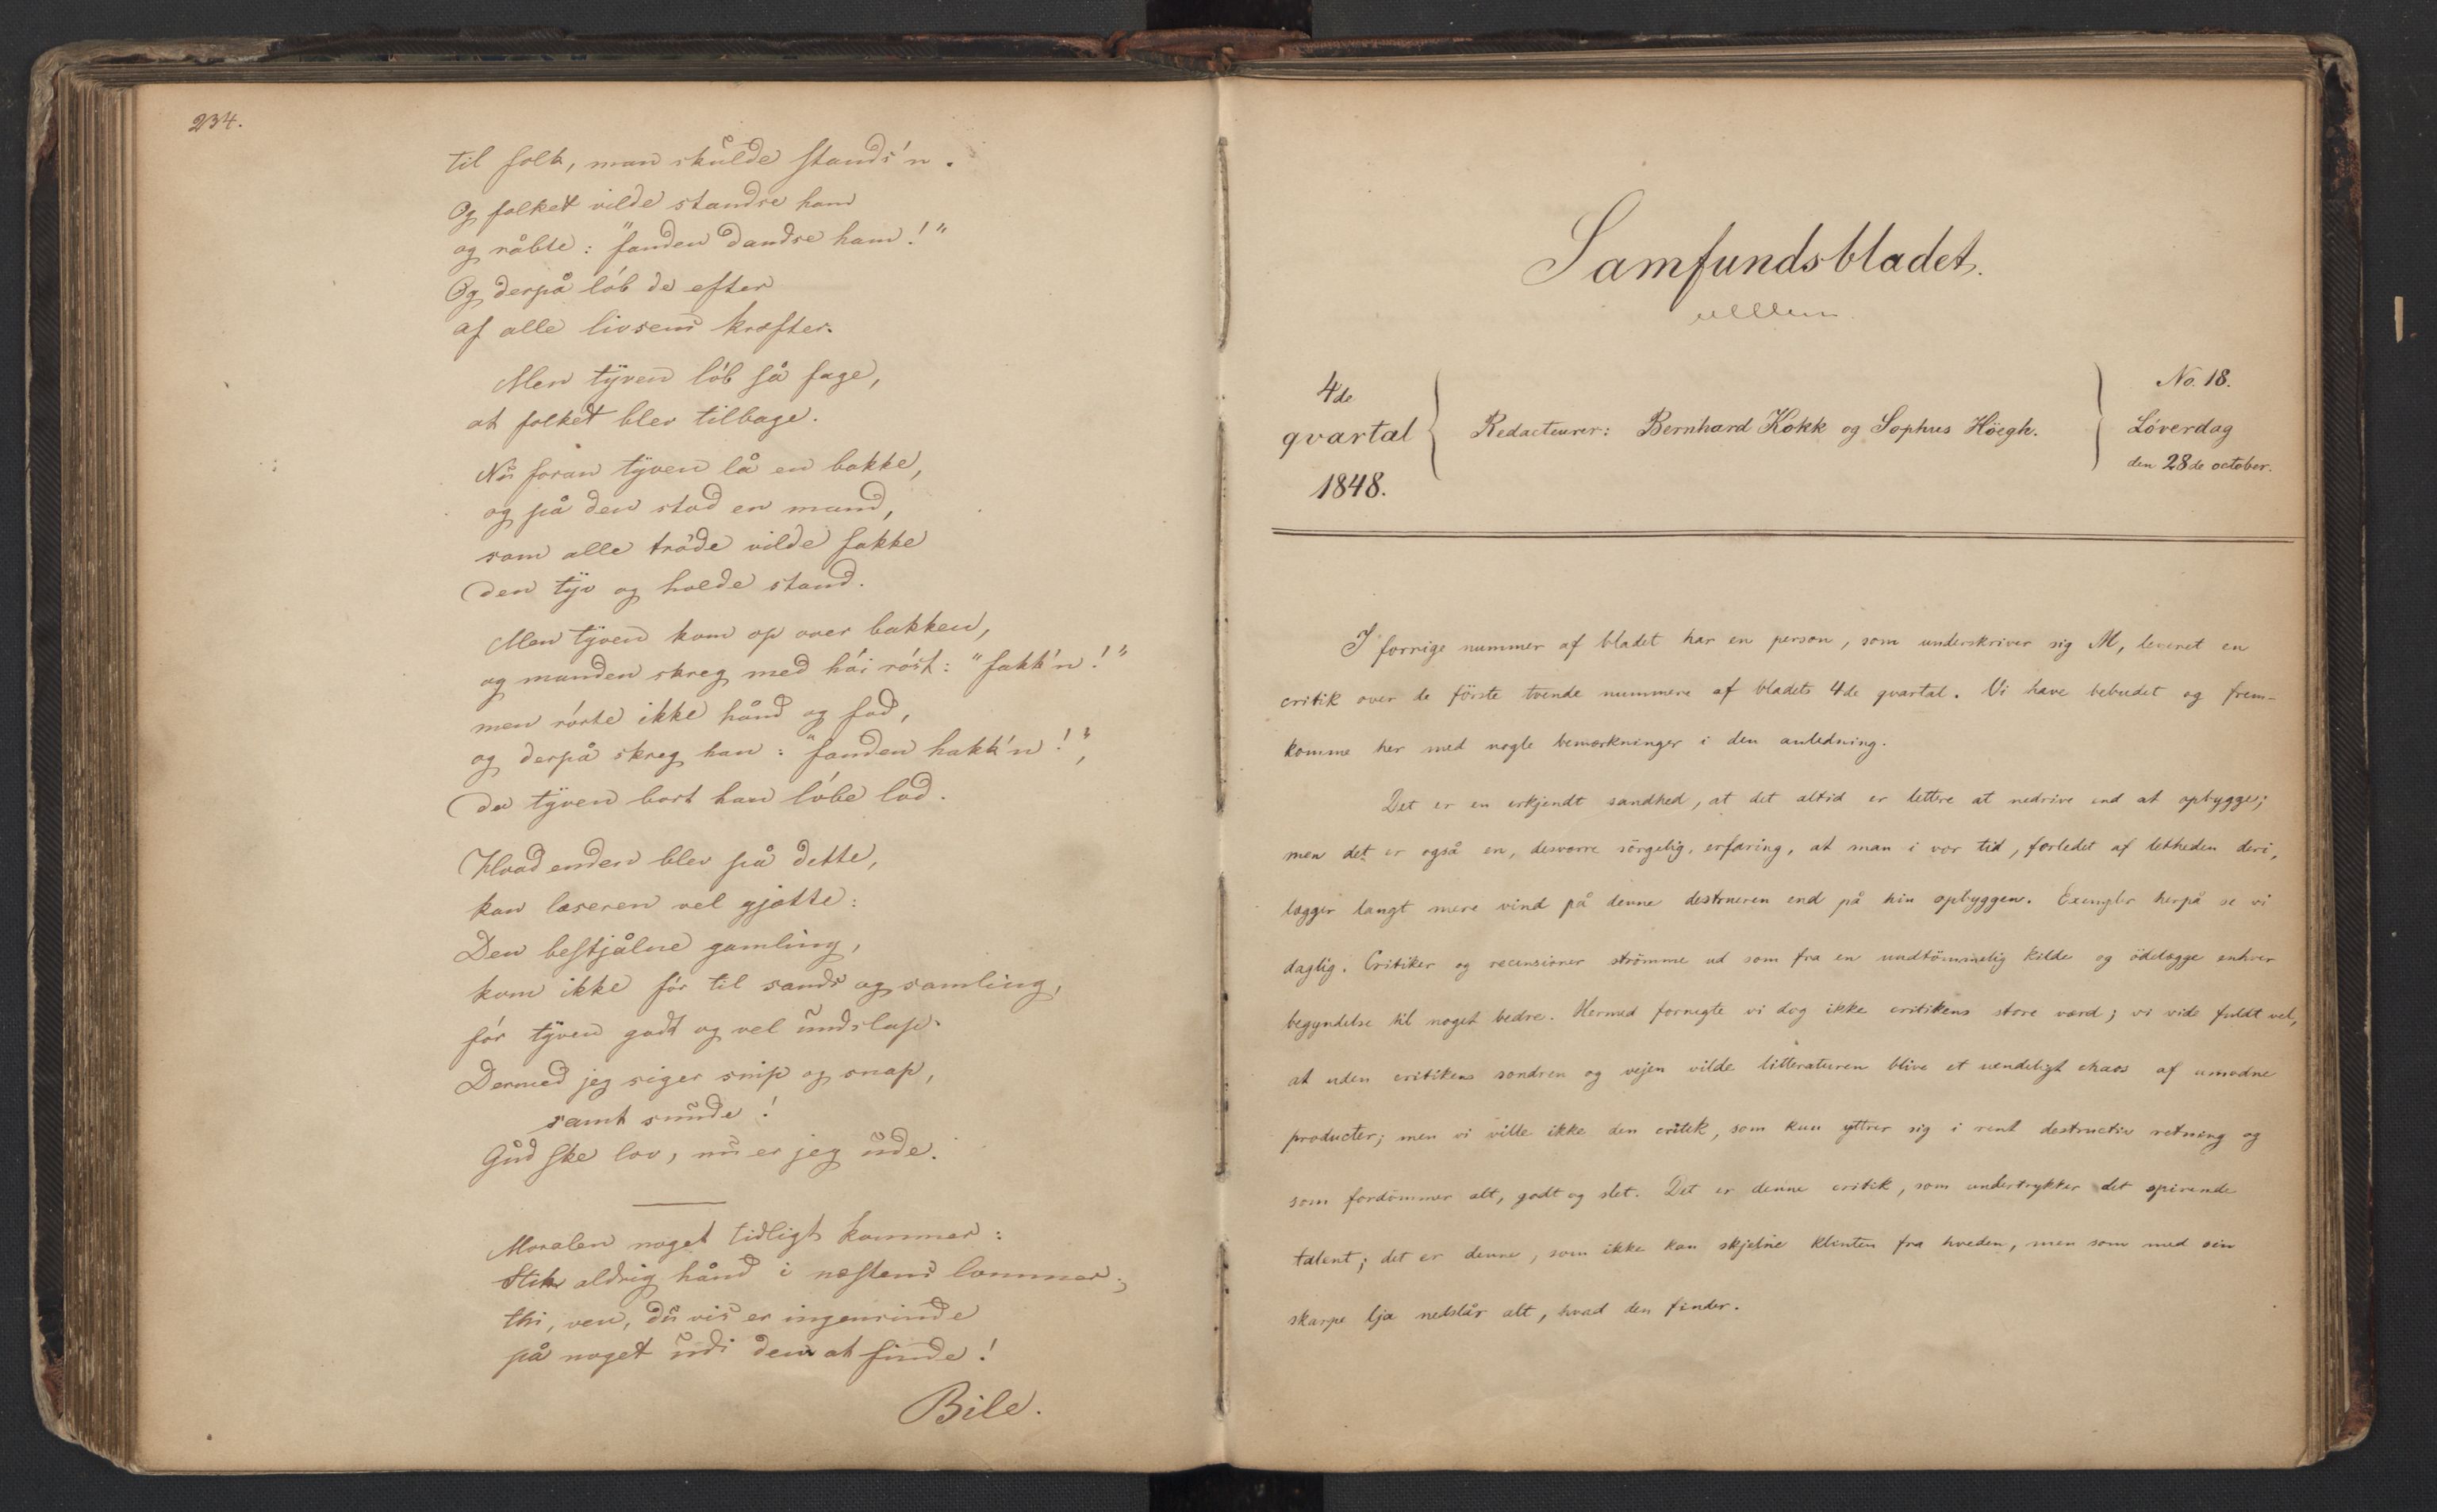 234.
til folk, man skulde stands'n.
Og folket vilde standse ham
og råbte: "fanden dandse ham!"
Og derpå løb de efter
af alle livsens kræfter.
Men tyven løb så fage,
at folket blev tilbage.
Nu foran tyven lå en bakke,
og på den stod en mand,
som alle trode vilde takke
den tyv og holde stand.
Men tyven kom op over bakken,
og manden skreg med høi røst: "takk'n!"
men rørte ikke hånd og fod,
og derpå skreg han: "fanden hakk'n!",
da tyven bort han løbe lod.
Hvad enden blev på dette,
kan læseren vel gjætte:
Den bestjålne gamling,
kom ikke før til sands og samling,
før tyven godt og vel undslap.
Dermed jeg siger snip og snap,
samt snude!
Gud ske lov, nu er jeg ude.
Moralen noget tidligt kommer:
Stik aldrig hånd i næstens lommer;
thi, ven, du vis er ingensinde
på noget udi dem at finde!
Bile.
Samfundsbladet.
4de
qvartal
1848.
Redacteurer: Bernhard Kokk og Sophus Höegh.
No. 18.
Löverdag
den 28de october.
I forrige nummer af bladet har en person, som underskriver sig M, leveret en
critik over de förste tvende nummere af bladets 4de qvartal. Vi have bebudet og frem-
komme her med nogle bemærkninger i den anledning.
Det er en erkjendt sandhed, at det altid er lettere at nedrive end at opbygge;
men det er også en, desværre sörgelig, erfaring, at man i vor tid, forledet af letheden deri,
lægger langt mere vind på denne destrueren end på hin opbyggen. Exempler herpå se vi
daglig. Critiker og recensioner strömme ud som fra en uudtömmelig kilde og ödelægge enhver
begyndelse til noget bedre. Hermed fornegte vi dog ikke critikens store værd; vi vide fuldt vel,
at uden critikens sondren og vejen vilde litteraturen blive et uendeligt chaos af umodne
producter; men vi ville ikke den critik, som kun yttrer sig i rent destructiv retning og
som fordömmer alt, godt og slet. Det er denne critik, som undertrykker det spirende
talent; det er denne, som ikke kan skjelne klinten fra hveden, men som med sin
skarpe lja nedslår alt, hvad den finder.